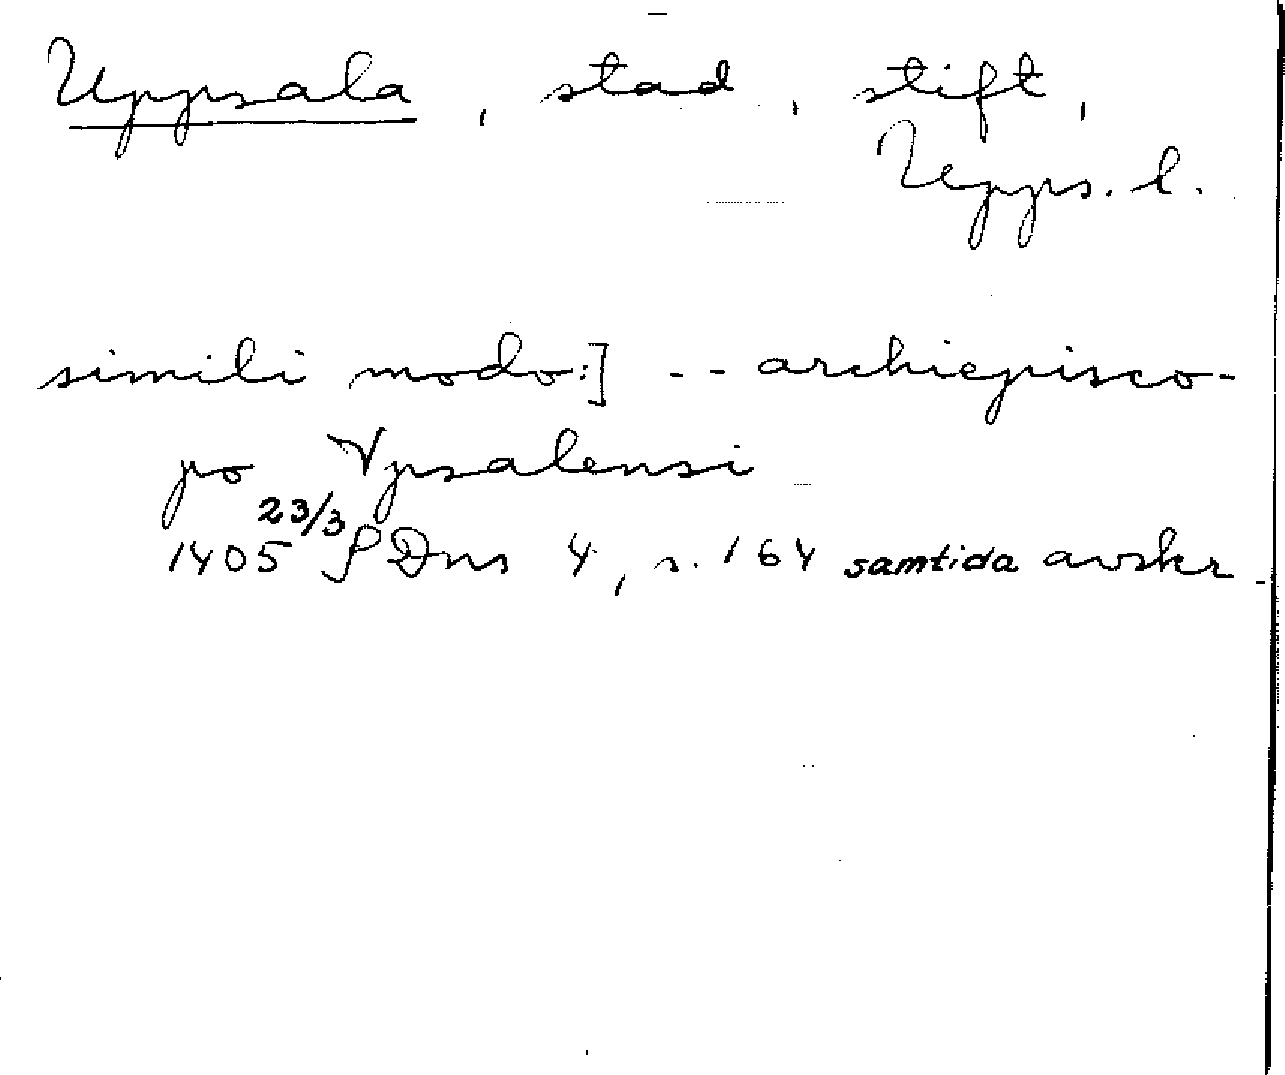 Uppsala, stad, stift,
Upps. l.
simili modo:] -- archiepisco-
po Vpsalensi
23/3
1405 SDns 4, s. 164 samtida avskr.